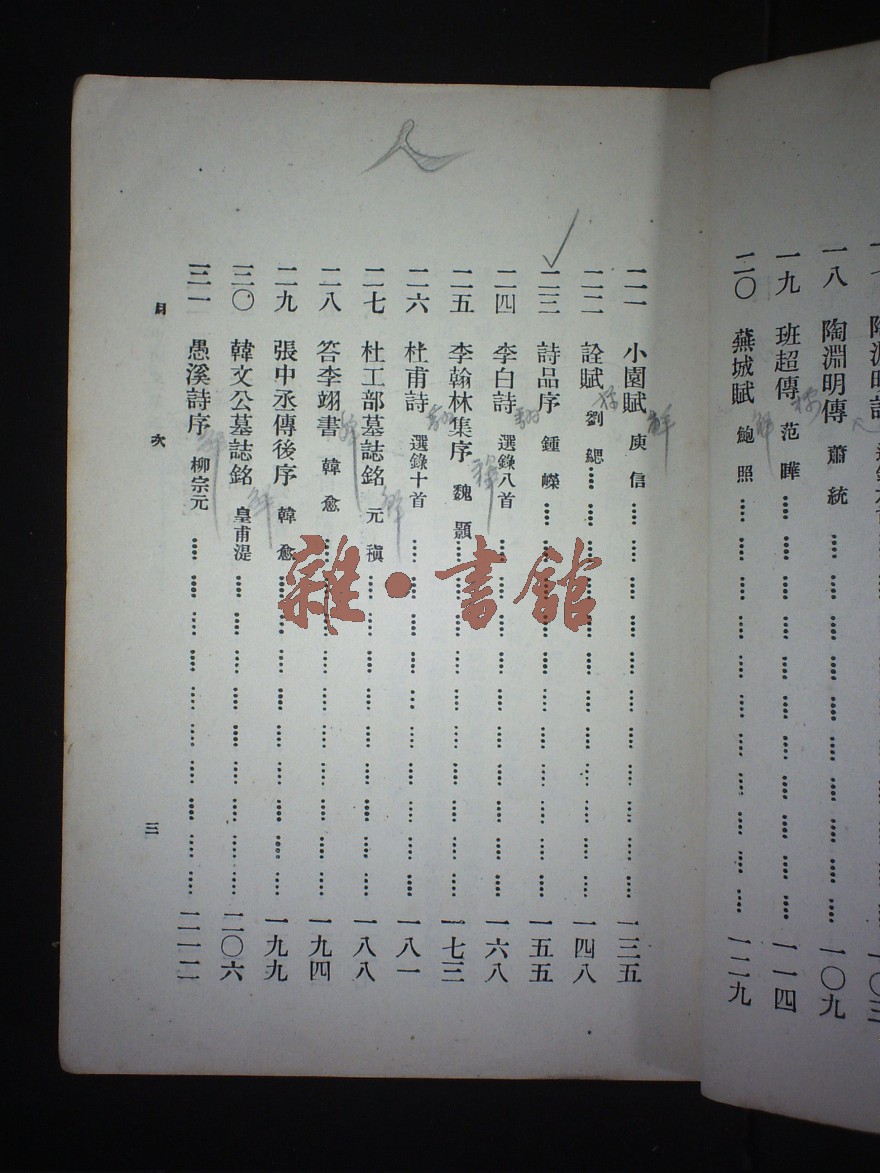 陶淵明詩 一〇三
一八 陶淵明傳 蕭統 …… 一〇九
一九 班超傳 范曄 …… 一一四
二〇 蕪城賦 鮑照 …… 一二九
人
二一 小園賦 庾信 …… 一三五
二二 詮賦 劉勰 …… 一四八
二三 詩品序 鍾嶸 …… 一五五
二四 李白詩 選錄八首 …… 一六八
二五 李翰林集序 魏顥 …… 一七三
二六 杜甫詩 選錄十首 …… 一八一
二七 杜工部墓誌銘 元稹 …… 一八八
二八 答李翊書 韓愈 …… 一九四
二九 張中丞傳後序 韓愈 …… 一九九
三〇 韓文公墓誌銘 皇甫湜 …… 二〇六
三一 愚溪詩序 柳宗元 …… 二一二
目次 三
雜·書館